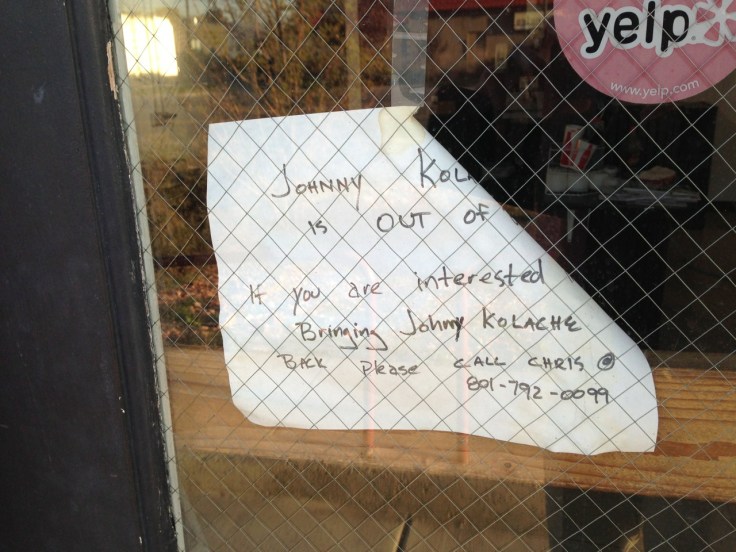 yelp
www.yelp.com
JOHNNY KOL
is OUT of
If you are interested
Bringing Johnny KOLACHE
BACK please CALL CHRIS @
801-792-0099